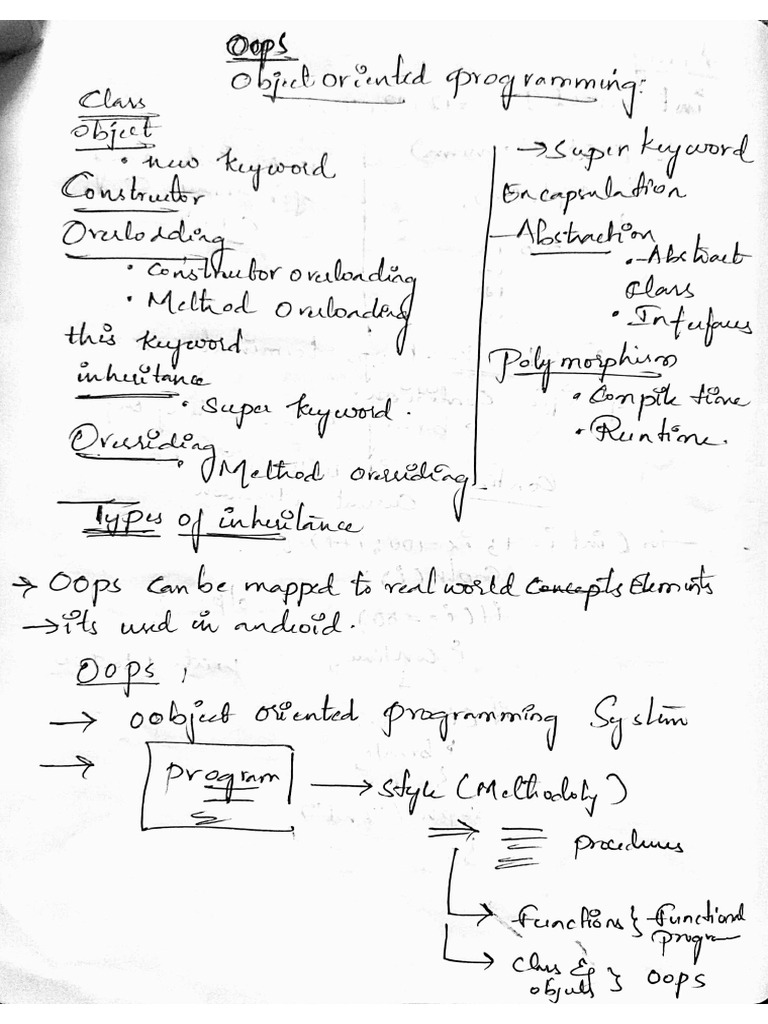 OOPS
Object oriented programming:
Class
Object
• new keyword
Constructor
Overlodding
• Constructor overloading
• Method overloading
this keyword
inheritance
• Super keyword.
Overriding
• Method overriding
→ Super keyword
Encapsulation
Abstraction
• Abstract
Class
• Interfaces
Polymorphism
• Compile time
• Runtime.
Types of inheritance
→ OOPS can be mapped to real world Concepts Elements
→ its used in android.
OOPS,
→ oobject oriented programming System
→ program → style (Methodoly)
⇒ procedures
→ Functions } Functional
program
→ Class &
objects } OOPS